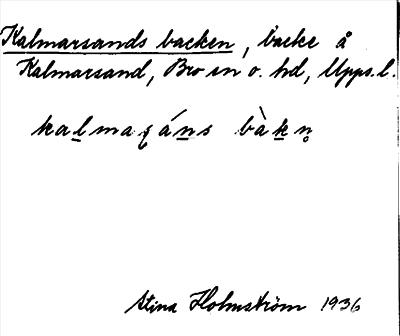 Kalmarsands backen, backe å
Kalmarsand, Bro sn o. hd, Upps. l.
Stina Holmström 1936